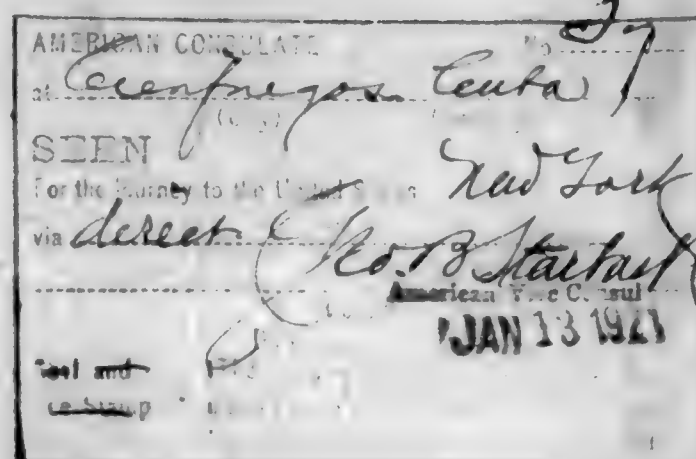 AMERICAN CONSULATE No. 37
at Cienfuegos Cuba
SEEN
For the journey to the United States New York
via direct Geo. B Starbuck
American Vice Consul
JAN 13 1921
Seal and
Stamp